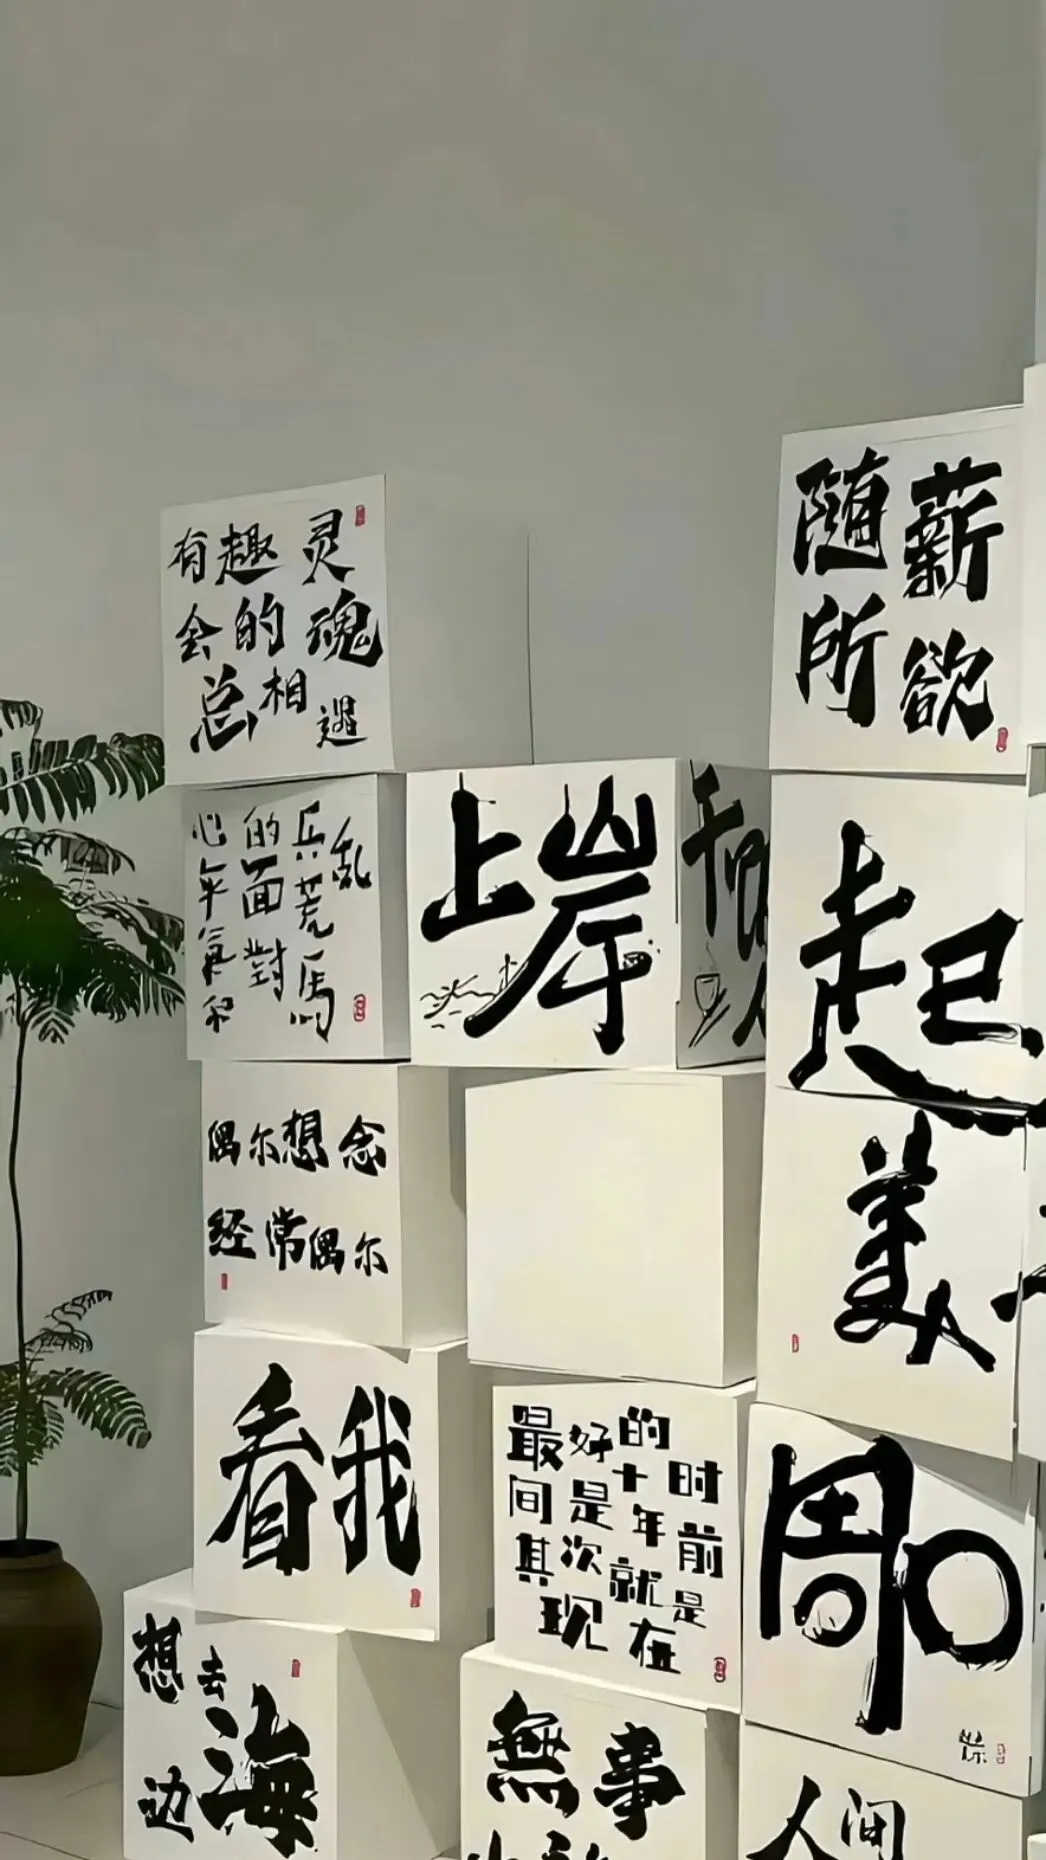 有趣的灵魂
总会相遇
随薪所欲
心平氣和
的面對
兵荒馬乱
上岸
起
美
偶尔想念
经常偶尔
看我
最好的
时间是十年前
其次就是
现在
周
想去
海边
無事
人间